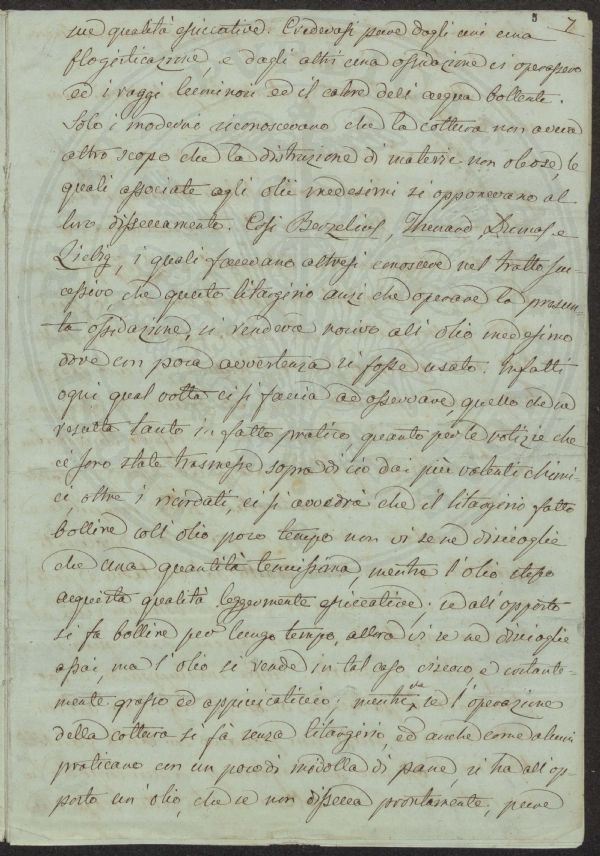 7
sue qualità essiccative. Credevasi pure dagli uni una
flogisticazione, e dagli altri una ossidazione vi operassero
ed i raggi luminosi ed il calore dell'acqua bollente.
Solo i moderni riconoscevano che la cottura non avere
altro scopo che la distruzione di materie non oleose, le
quali associate agli olii medesimi si opponevano al
loro disseccamento. Così Berzelius, Thenard, Dumas e
Liebig, i quali facevano altresì conoscere nel tratto suc-
cessivo che questo litargirio anzi che operare la presun-
ta ossidazione, si rendeva nocivo all'olio medesimo
dove con poca avvertenza si fosse usato. Infatti
ogni qual volta ci si faccia ad osservare, quello che ne
resulta tanto in fatto pratico, quanto per le notizie che
ci sono state trasmesse sopra di ciò dai più valenti chimi-
ci, oltre i ricordati, ci si avvedrà che il litargirio fatto
bollire coll'olio poco tempo non vi se ne discioglie
che una quantità tenuissima, mentre l'olio stesso
acquista qualità leggermente essiccative: se all'opposto
si fa bollire per lungo tempo, allora vi se ne discioglie
assai, ma l'olio si rende in tal caso viscoso, e costante-
mente grasso ed appiccaticcio: se l'operazione
della cottura si fà senza litargirio, ed anche come alcuni
praticano con un poco di midolla di pane, si ha all'op-
posto un'olio, che se non dissecca prontamente, pure